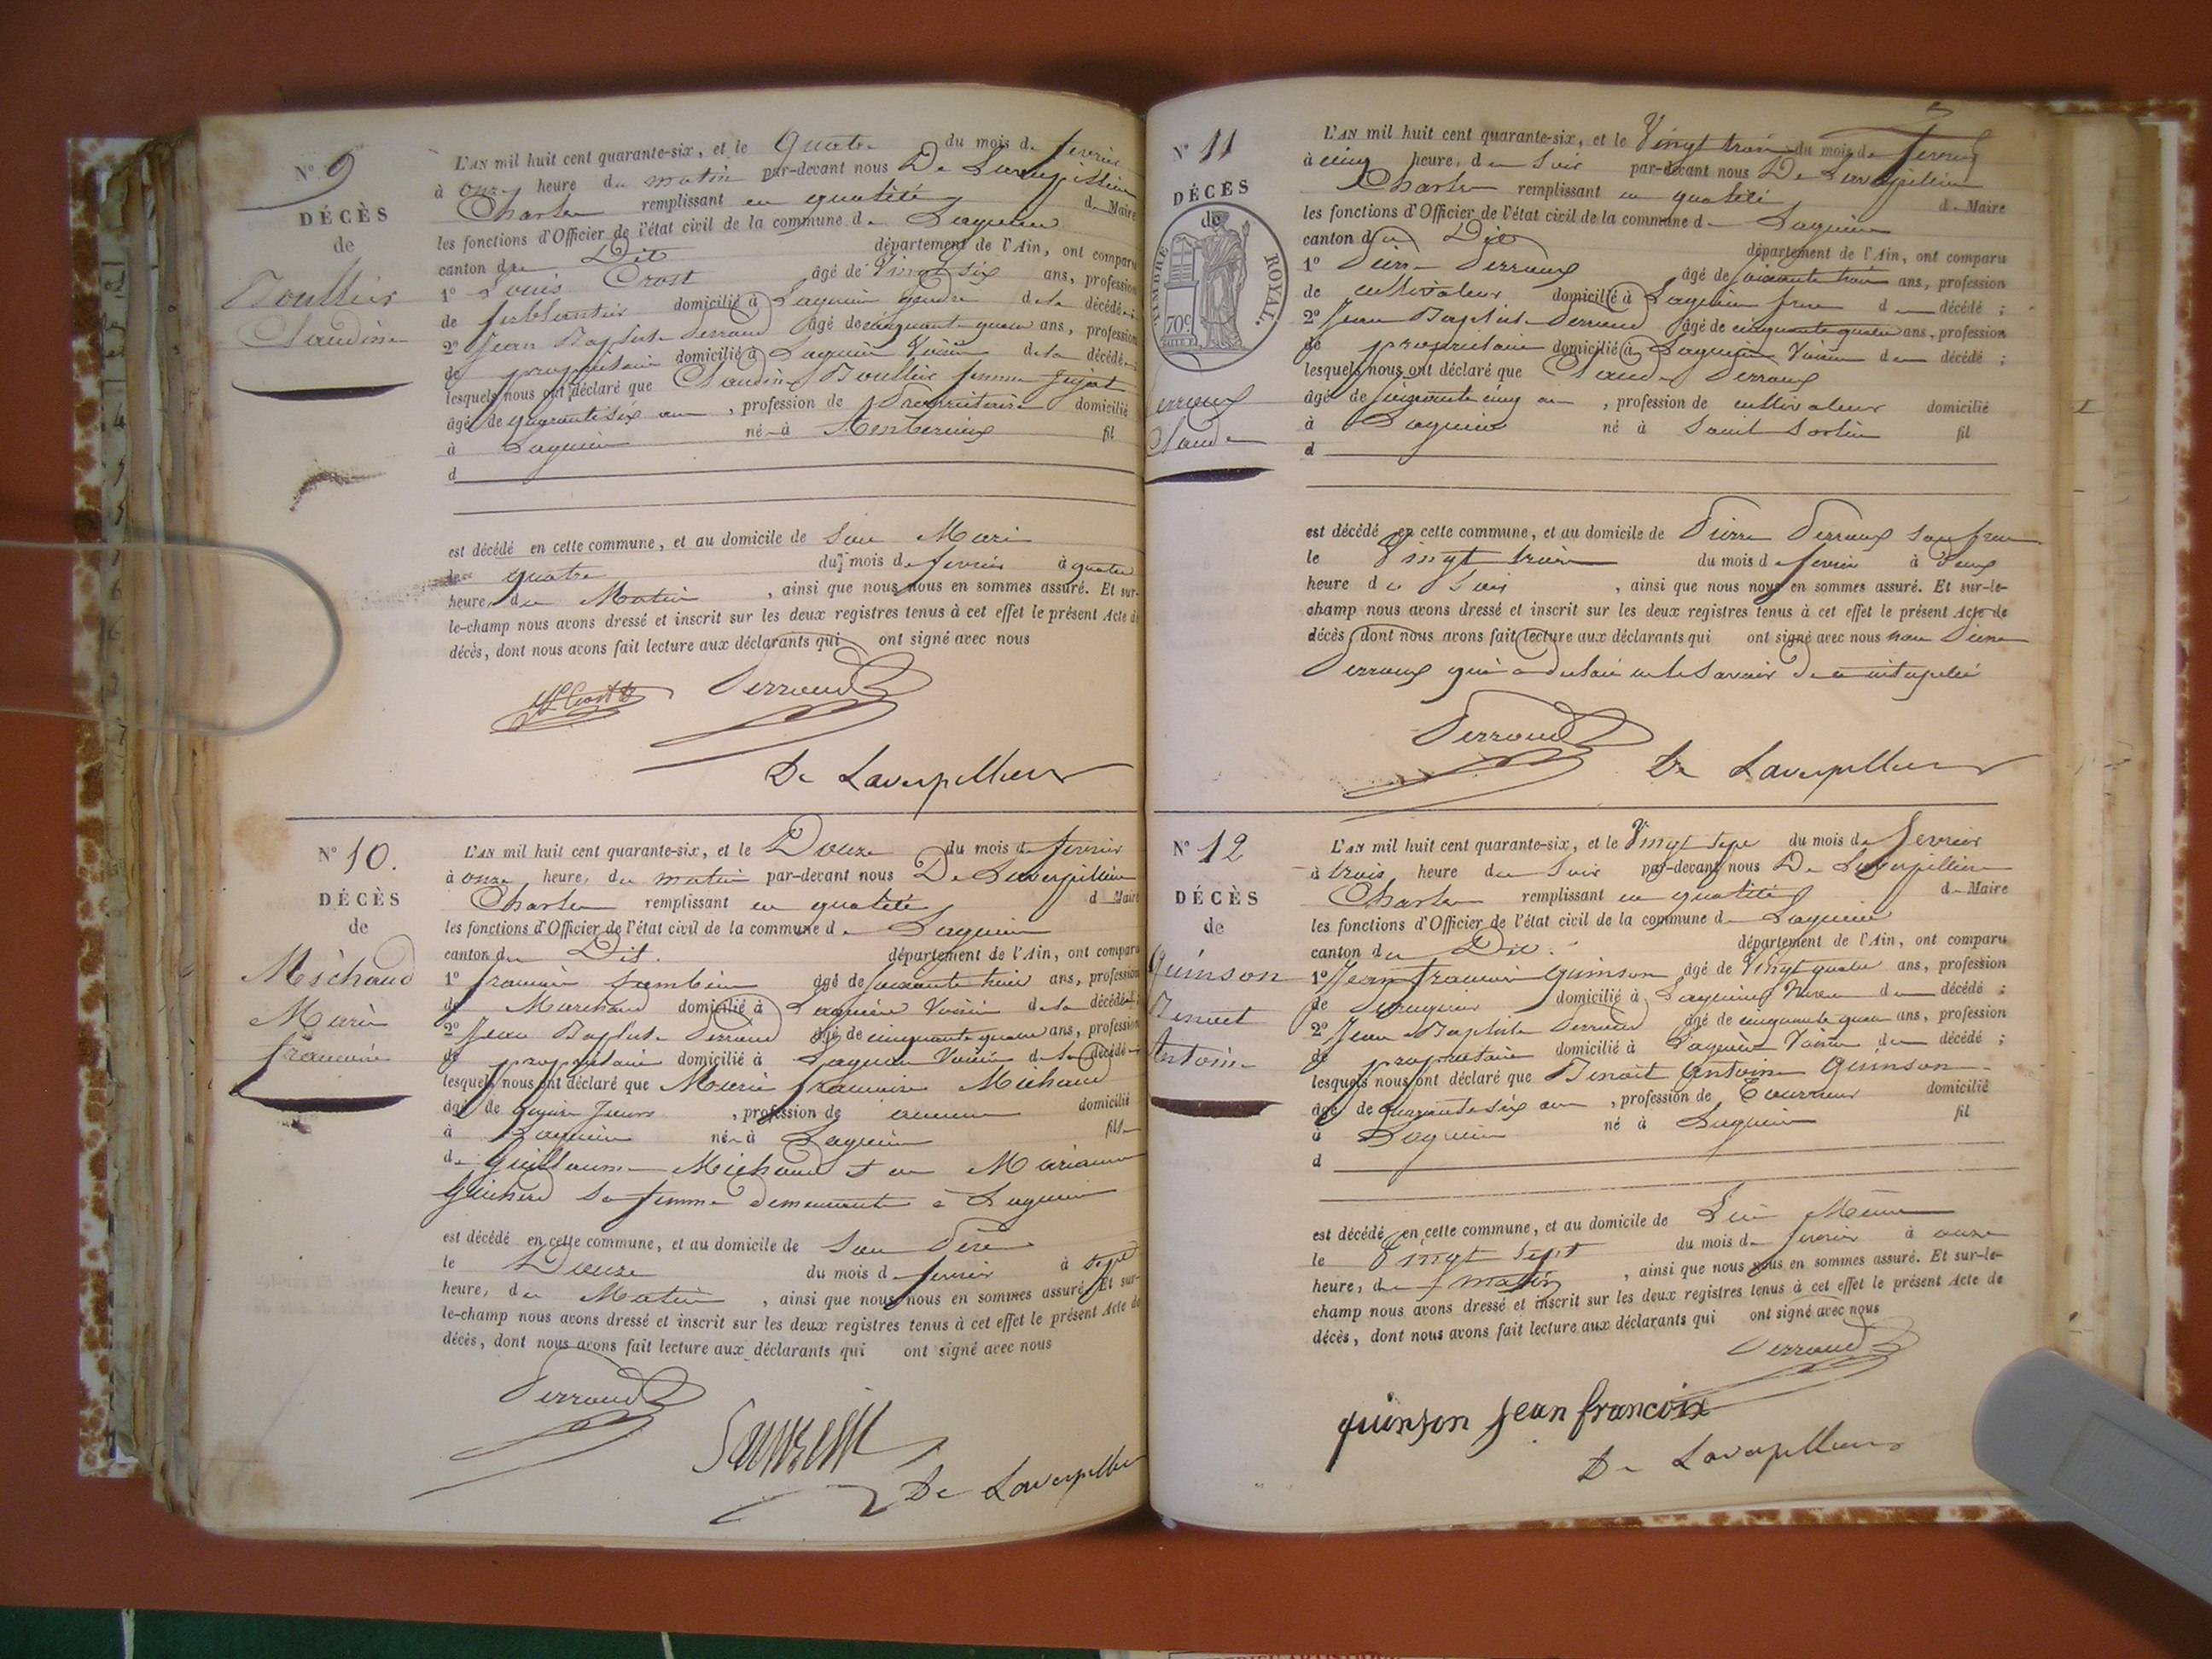 N° 9
DÉCÈS
de
Boullier
Claudine
L'AN mil huit cent quarante-six, et le quatre du mois de février
à onze heure du matin par-devant nous De Laverpillière
Charles remplissant en qualité de Maire
les fonctions d'Officier de l'état civil de la commune de Lagnieu
canton du Dit département de l'Ain, ont comparu
1° Louis Crost âgé de Vingt six ans, profession
de ferblantier domicilié à Lagnieu gendre de la décédée
2° Jean Baptiste Perraud âgé de cinquante quatre ans, profession
de propriétaire domicilié à Lagnieu Voisin de la décédée
lesquels nous ont déclaré que Claudine Boullier femme Jujat
âgé de quarante six ans, profession de Propriétaire domicilié
à Lagnieu née à Ambérieux fil
d
est décédé en cette commune, et au domicile de Son Mari
le quatre du mois de février à quatre
heure, du Matin, ainsi que nous nous en sommes assuré. Et sur-
le-champ nous avons dressé et inscrit sur les deux registres tenus à cet effet le présent Acte de
décès, dont nous avons fait lecture aux déclarants qui ont signé avec nous
Crost Perraud
De Laverpilliere
N° 10.
DÉCÈS
de
Michaud
Marie
françoise
L'AN mil huit cent quarante-six, et le Douze du mois de février
à onze heure, du matin par-devant nous De Laverpillière
Charles remplissant en qualité de Maire
les fonctions d'Officier de l'état civil de la commune de Lagnieu
canton du Dit. département de l'Ain, ont comparu
1° françois âgé de soixante ans, profession
de Marchand domicilié à Lagnieu Voisin de la décédée
2° Jean Baptiste Perraud âgé de cinquante quatre ans, profession
de propriétaire domicilié à Lagnieu Voisin de la décédée
lesquels nous ont déclaré que Marie françoise Michaud
âgé de quinze Jours, profession de aucune domicilié
à Lagnieu née à Lagnieu fille
de Guillaume Michaud et de Marianne
Guichard sa femme demeurants à Lagnieu
est décédé en cette commune, et au domicile de Son Père
le Douze du mois de février à sept
heure, du Matin, ainsi que nous nous en sommes assuré. Et sur-
le-champ nous avons dressé et inscrit sur les deux registres tenus à cet effet le présent Acte de
décès, dont nous avons fait lecture aux déclarants qui ont signé avec nous
Perraud
De Laverpilliere
N° 11
DÉCÈS
de
TIMBRE ROYAL.
70c
Perroux
Claude
L'AN mil huit cent quarante-six, et le Vingt trois du mois de février
à cinq heure, du Soir par-devant nous De Laverpillière
Charles remplissant en qualité de Maire
les fonctions d'Officier de l'état civil de la commune de Lagnieu
canton du Dit département de l'Ain, ont comparu
1° Pierre Perroux âgé de soixante trois ans, profession
de cultivateur domicilié à Lagnieu frère du décédé ;
2° Jean Baptiste Perraud âgé de cinquante quatre ans, profession
de propriétaire domicilié à Lagnieu Voisin du décédé ;
lesquels nous ont déclaré que Claude Perroux
âgé de cinquante cinq ans, profession de cultivateur domicilié
à Lagnieu né à Saint Sorlin fil
d
est décédé en cette commune, et au domicile de Pierre Perroux son frère
le Vingt trois du mois de février à Deux
heure du Soir, ainsi que nous nous en sommes assuré. Et sur-le-
champ nous avons dressé et inscrit sur les deux registres tenus à cet effet le présent Acte de
décès dont nous avons fait lecture aux déclarants qui ont signé avec nous non Pierre
Perroux qui a déclaré ne le savoir de ce interpellé
Perraud
De Laverpilliere
N° 12
DÉCÈS
de
Quinson
Benoit
Antoine
L'AN mil huit cent quarante-six, et le Vingt Sept du mois de février
à trois heure du Soir par-devant nous De Laverpillière
Charles remplissant en qualité de Maire
les fonctions d'Officier de l'état civil de la commune de Lagnieu
canton du Dit. département de l'Ain, ont comparu
1° Jean François Quinson âgé de Vingt quatre ans, profession
de domicilié à Lagnieu Neveu du décédé ;
2° Jean Baptiste Perraud âgé de cinquante quatre ans, profession
de propriétaire domicilié à Lagnieu Voisin du décédé ;
lesquels nous ont déclaré que Benoit Antoine Quinson
âgé de quarante six ans, profession de Tourneur domicilié
à Lagnieu né à Lagnieu fil
d
est décédé en cette commune, et au domicile de Lui Même
le Vingt Sept du mois de février à onze
heure, du matin, ainsi que nous nous en sommes assuré. Et sur-le-
champ nous avons dressé et inscrit sur les deux registres tenus à cet effet le présent Acte de
décès, dont nous avons fait lecture aux déclarants qui ont signé avec nous
Perraud
quinson jean francoix
De Laverpilliere